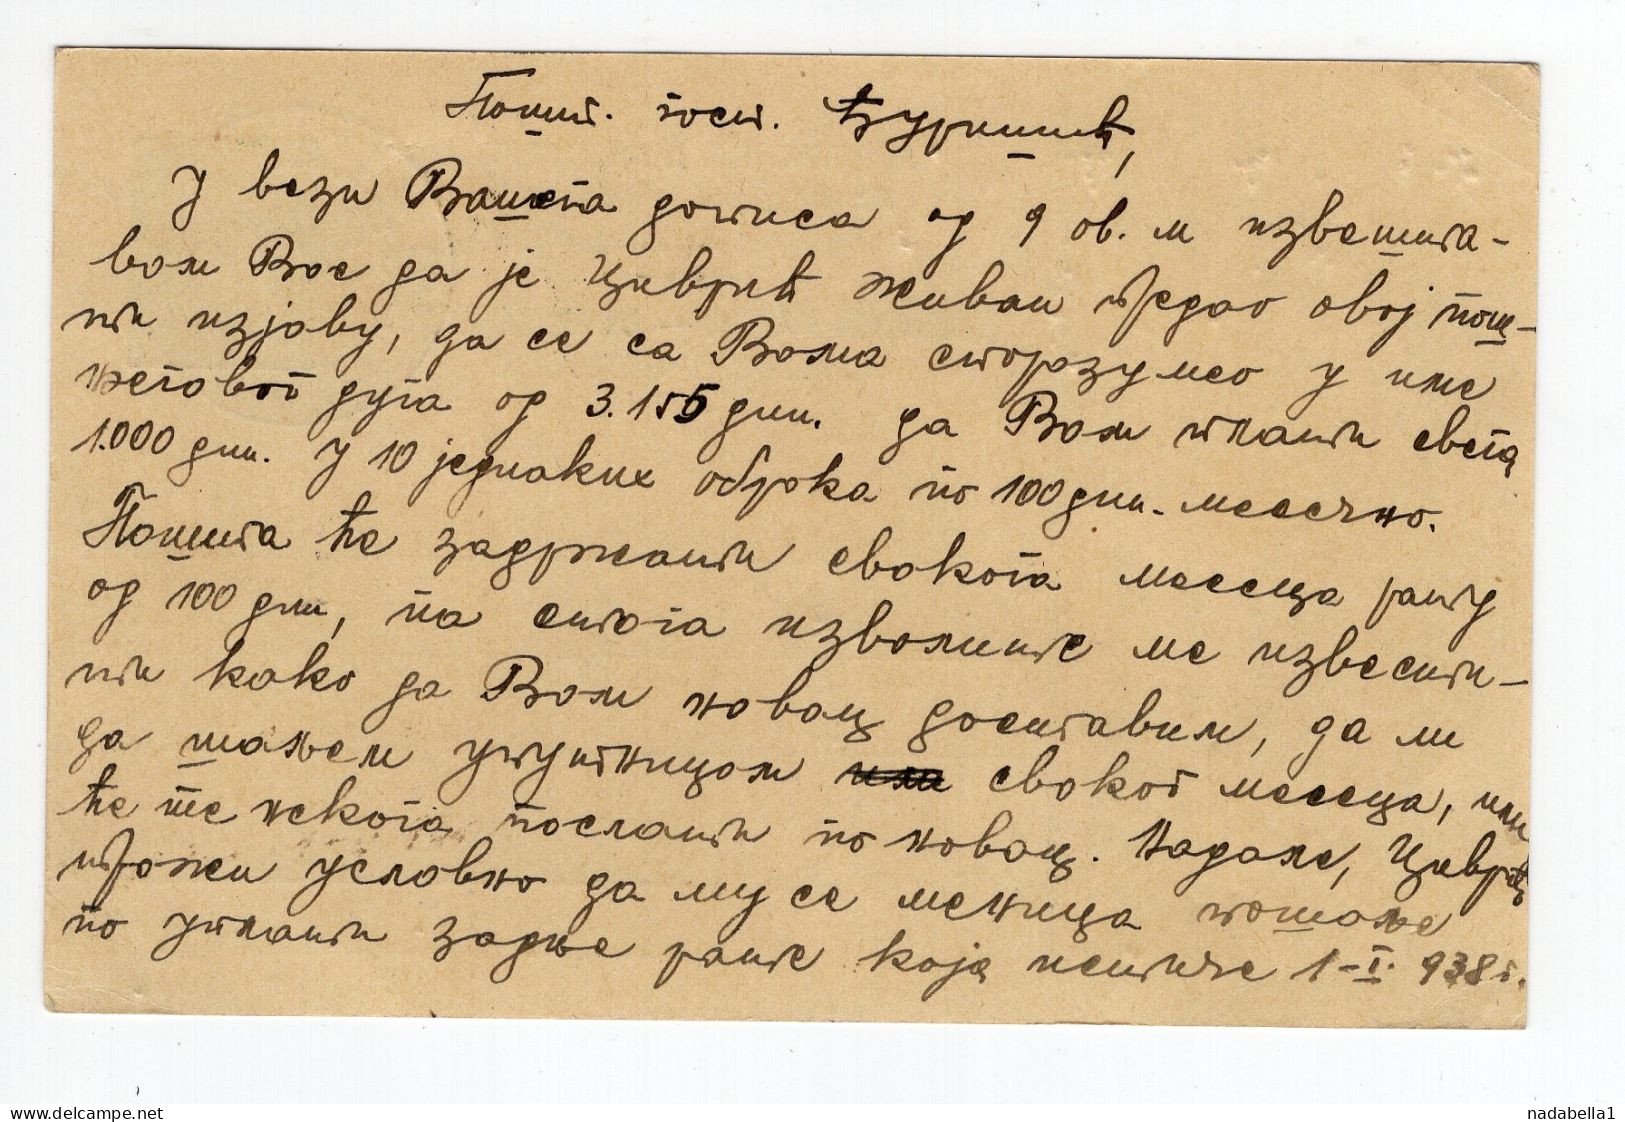 Пошт. госп. Ђуришић,
У вези Вашега дописа од 9 ов. м извешта-
вам Вас да је Циврић Живан предао овој пош-
ти изјаву, да се са Вама споразумео у име
његовог дуга од 3.155 дин. да Вам плати свега
1.000 дин. у 10 једнаких оброка по 100 дин. месечно.
Пошта ће задржати свакога месеца рату
од 100 дин, па стога изволите ме извести-
ти како да Вам новац доставим, да ли
да шаљем упутницом сваког месеца, или
ће те некога послати по новац. Надаље, Циврић
тражи условно да му се меница пошаље
по уплати задње рате која истиче 1-I. 938 г.
www.delcampe.net
nadabella1